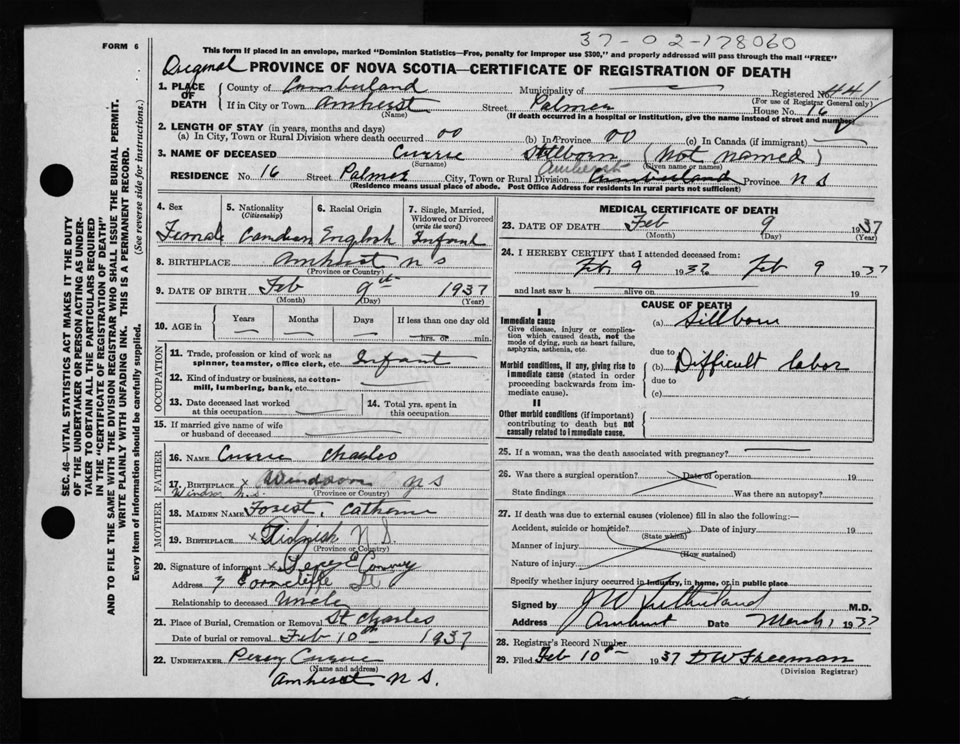 37-02-178060
FORM 6
This form if placed in an envelope, marked "Dominion Statistics—Free, penalty for improper use $300," and properly addressed will pass through the mail "FREE"
Original PROVINCE OF NOVA SCOTIA—CERTIFICATE OF REGISTRATION OF DEATH
1. PLACE OF DEATH County of Cumberland Municipality of Registered No. 441
(For use of Registrar General only)
If in City or Town Amherst Street Palmer House No. 16
(Name) (If death occurred in a hospital or institution, give the name instead of street and number)
2. LENGTH OF STAY (in years, months and days)
(a) In City, Town or Rural Division where death occurred 00 (b) In Province 00 (c) In Canada (if immigrant)
3. NAME OF DECEASED Currie Stillborn (Not named)
(Surname) (Given name or names)
Amherst
RESIDENCE No. 16 Street Palmer City, Town or Rural Division Cumberland Province N S
(Residence means usual place of abode. Post Office Address for residents in rural parts not sufficient)
4. Sex 5. Nationality (Citizenship) 6. Racial Origin 7. Single, Married, Widowed or Divorced (write the word)
Female Candian English Infant
8. BIRTHPLACE Amherst N S
(Province or Country)
9. DATE OF BIRTH Feb 9th 1937
(Month) (Day) (Year)
10. AGE in Years Months Days If less than one day old
hrs. or min.
OCCUPATION
11. Trade, profession or kind of work as spinner, teamster, office clerk, etc. Infant
12. Kind of industry or business, as cotton-mill, lumbering, bank, etc.
13. Date deceased last worked at this occupation
14. Total yrs. spent in this occupation
15. If married give name of wife or husband of deceased
FATHER
16. NAME Currie Charles
17. BIRTHPLACE x Windsor N S
Windsor N.S. (Province or Country)
MOTHER
18. MAIDEN NAME Forest, Catherine
19. BIRTHPLACE x Tidnish N.S.
(Province or Country)
20. Signature of informant x Percy E
Address 7 St
Relationship to deceased Uncle
21. Place of Burial, Cremation or Removal St Charles
Date of burial or removal Feb 10th 1937
22. UNDERTAKER Percy Currie
(Name and address)
Amherst N S.
MEDICAL CERTIFICATE OF DEATH
23. DATE OF DEATH Feb 9 1937
(Month) (Day) (Year)
24. I HEREBY CERTIFY that I attended deceased from:
Feb 9 193 Feb 9 1937
and last saw h alive on 19
CAUSE OF DEATH
I
Immediate cause
Give disease, injury or complication which caused death, not the mode of dying, such as heart failure, asphyxia, asthenia, etc.
(a) Stillborn
due to
Morbid conditions, if any, giving rise to immediate cause (stated in order proceeding backwards from immediate cause).
(b) Difficult labor
due to
(c)
II
Other morbid conditions (if important) contributing to death but not causally related to immediate cause.
25. If a woman, was the death associated with pregnancy?
26. Was there a surgical operation? Date of operation
State findings Was there an autopsy?
27. If death was due to external causes (violence) fill in also the following:—
Accident, suicide or homicide? Date of injury 19
(State which)
Manner of injury
(How sustained)
Nature of injury
Specify whether injury occurred in industry, in home, or in public place
Signed by J W Sutherland M.D.
Address Amherst Date March 1 1937
28. Registrar's Record Number
29. Filed Feb 10th 1937 D W Freeman
(Division Registrar)
SEC. 46—VITAL STATISTICS ACT MAKES IT THE DUTY
OF THE UNDERTAKER OR PERSON ACTING AS UNDER-
TAKER TO OBTAIN ALL THE PARTICULARS REQUIRED
IN THE "CERTIFICATE OF REGISTRATION OF DEATH"
AND TO FILE THE SAME WITH THE DIVISION REGISTRAR WHO SHALL ISSUE THE BURIAL PERMIT.
WRITE PLAINLY WITH UNFADING INK. THIS IS A PERMANENT RECORD.
Every item of information should be carefully supplied. (See reverse side for instructions.)